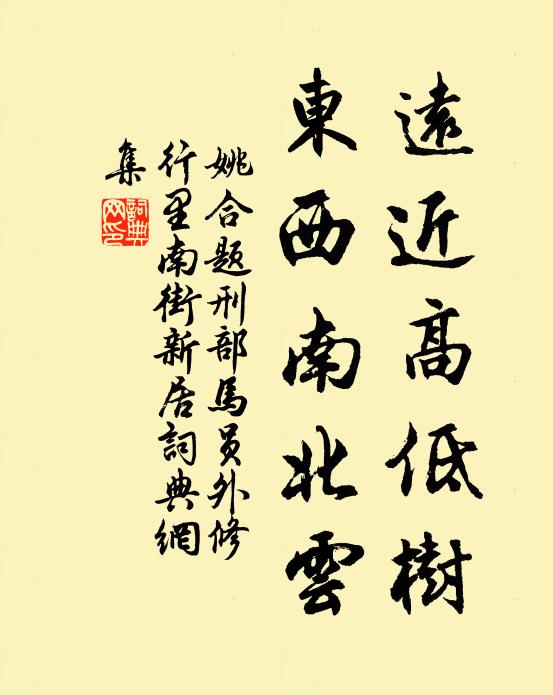 遠近高低樹
東西南北雲
姚合題刑部馬員外修
行里南街新居詞典網
集
詞典
网印